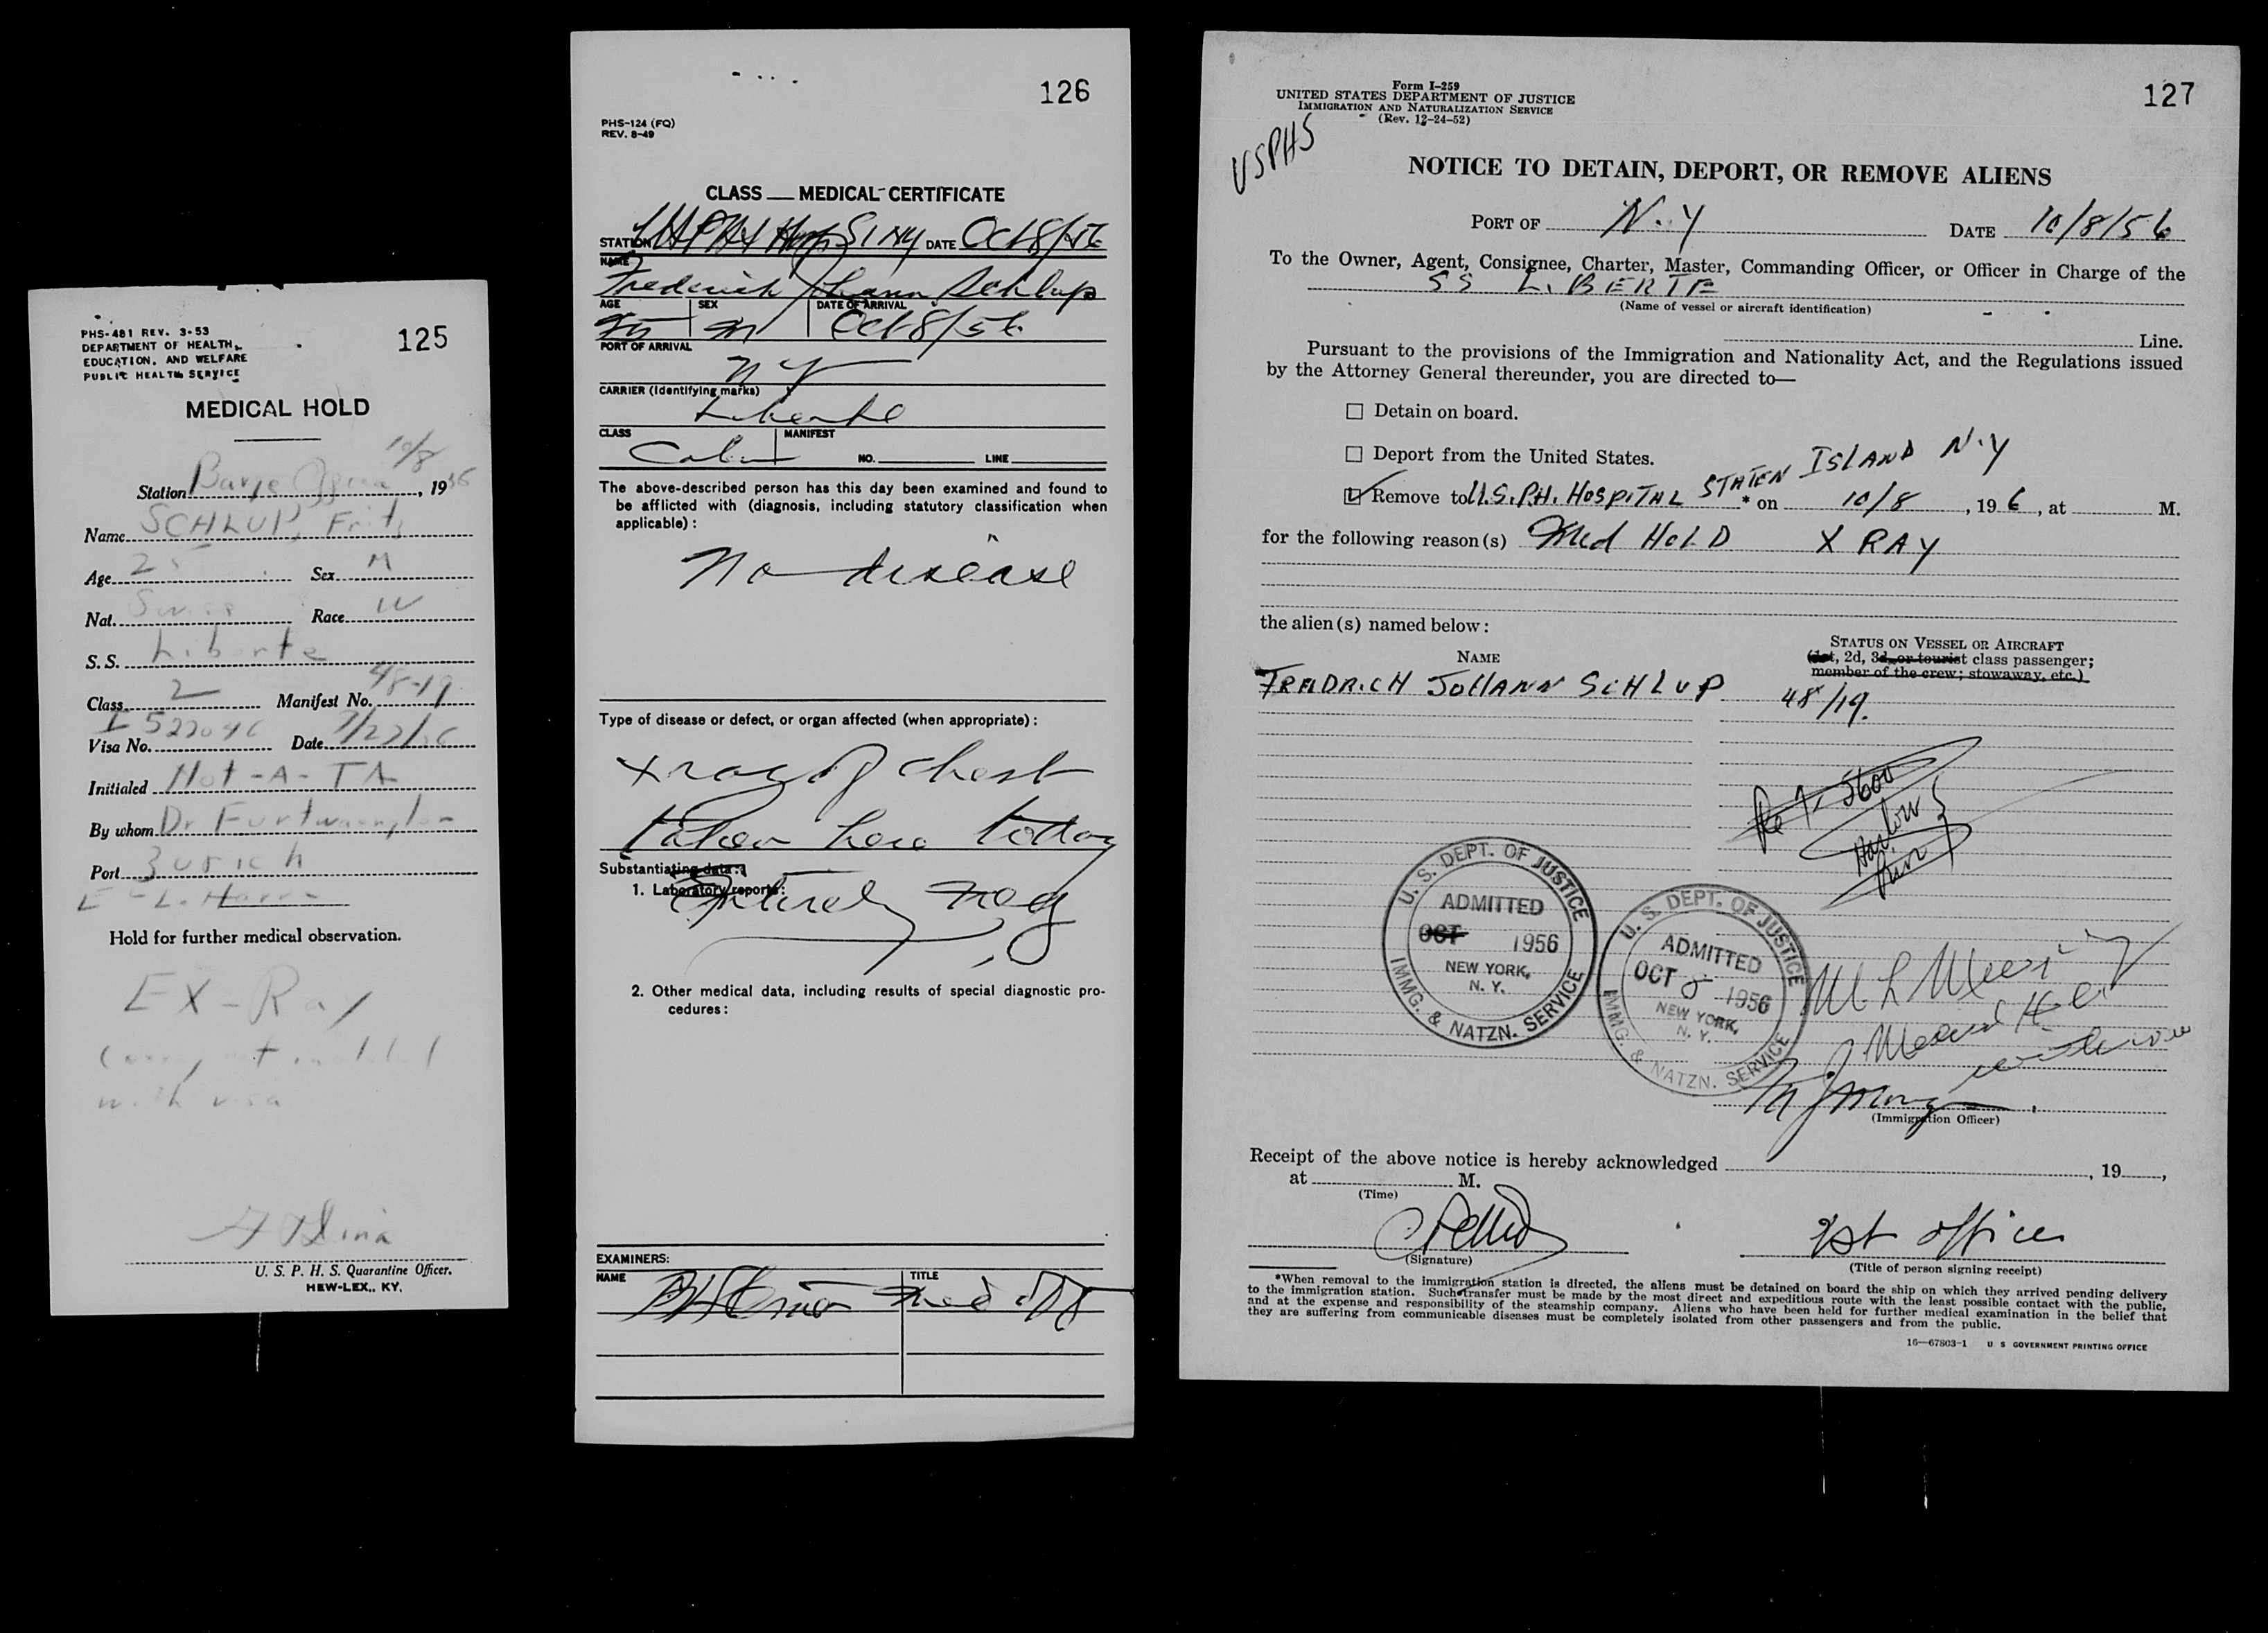 125
PHS-481 REV. 3-53
DEPARTMENT OF HEALTH,
EDUCATION, AND WELFARE
PUBLIC HEALTH SERVICE
MEDICAL HOLD
10/8
Station Barge Office, 1956
Name SCHLUP, Fritz
Age 25 Sex M
Nat. Swiss Race W
S. S. Liberte
Class 2 Manifest No. 48-19
Visa No. I 522046 Date 7/27/56
Initialed Not-A-TA
By whom Dr Furtwaengler
Port Zurich
Hold for further medical observation.
EX-Ray
with visa
U. S. P. H. S. Quarantine Officer.
HEW-LEX., KY.
126
PHS-124 (FQ)
REV. 8-49
CLASS MEDICAL CERTIFICATE
STATION USPHS Hosp SI NY DATE Oct 8/56
NAME
Frederich Johann Schlup
AGE SEX DATE OF ARRIVAL
25 M Oct 8/56
PORT OF ARRIVAL
N Y
CARRIER (Identifying marks)
Liberte
CLASS MANIFEST
Cabin NO. LINE
The above-described person has this day been examined and found to
be afflicted with (diagnosis, including statutory classification when
applicable):
No disease
Type of disease or defect, or organ affected (when appropriate):
X ray of chest
taken here today
Substantiating data:
1. Laboratory reports:
Entirely neg
2. Other medical data, including results of special diagnostic pro-
cedures:
EXAMINERS:
NAME TITLE
127
Form I-259
UNITED STATES DEPARTMENT OF JUSTICE
IMMIGRATION AND NATURALIZATION SERVICE
(Rev. 12-24-52)
USPHS
NOTICE TO DETAIN, DEPORT, OR REMOVE ALIENS
PORT OF N.Y DATE 10/8/56
To the Owner, Agent, Consignee, Charter, Master, Commanding Officer, or Officer in Charge of the
SS LIBERTE
(Name of vessel or aircraft identification)
Line.
Pursuant to the provisions of the Immigration and Nationality Act, and the Regulations issued
by the Attorney General thereunder, you are directed to—
☐ Detain on board.
☐ Deport from the United States.
Remove to U.S.P.H. HOSPITAL STATEN ISLAND N.Y * on 10/8, 19 6, at M.
for the following reason(s) Med HOLD X RAY
the alien(s) named below:
NAME
STATUS ON VESSEL OR AIRCRAFT
(1st, 2d, 3d, or tourist class passenger;
member of the crew; stowaway, etc.)
FREDRICH JOHANN SCHLUP 48/19.
U. S. DEPT. OF JUSTICE
ADMITTED
OCT 1956
NEW YORK,
N. Y.
IMMG. & NATZN. SERVICE
U. S. DEPT. OF JUSTICE
ADMITTED
OCT 8 1956
NEW YORK,
N. Y.
IMMG. & NATZN. SERVICE
(Immigration Officer)
Receipt of the above notice is hereby acknowledged , 19 ,
at M.
(Time)
1st officer
(Signature)
(Title of person signing receipt)
*When removal to the immigration station is directed, the aliens must be detained on board the ship on which they arrived pending delivery
to the immigration station. Such transfer must be made by the most direct and expeditious route with the least possible contact with the public,
and at the expense and responsibility of the steamship company. Aliens who have been held for further medical examination in the belief that
they are suffering from communicable diseases must be completely isolated from other passengers and from the public.
16—67803-1 U S GOVERNMENT PRINTING OFFICE